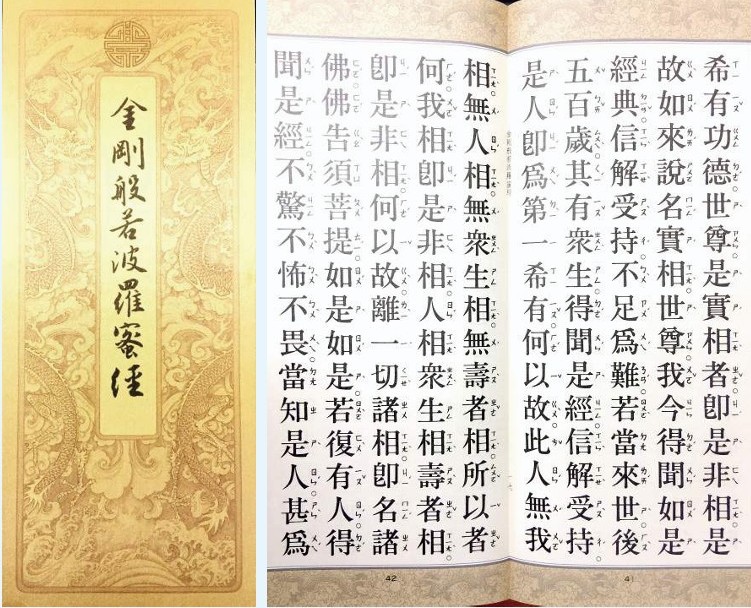 金剛般若波羅蜜經
希有功德世尊是實相者卽是非相是
故如來說名實相世尊我今得聞如是
經典信解受持不足爲難若當來世後
五百歲其有眾生得聞是經信解受持
是人卽爲第一希有何以故此人無我
41
相無人相無眾生相無壽者相所以者
何我相卽是非相人相眾生相壽者相
卽是非相何以故離一切諸相卽名諸
佛佛告須菩提如是如是若復有人得
聞是經不驚不怖不畏當知是人甚爲
42